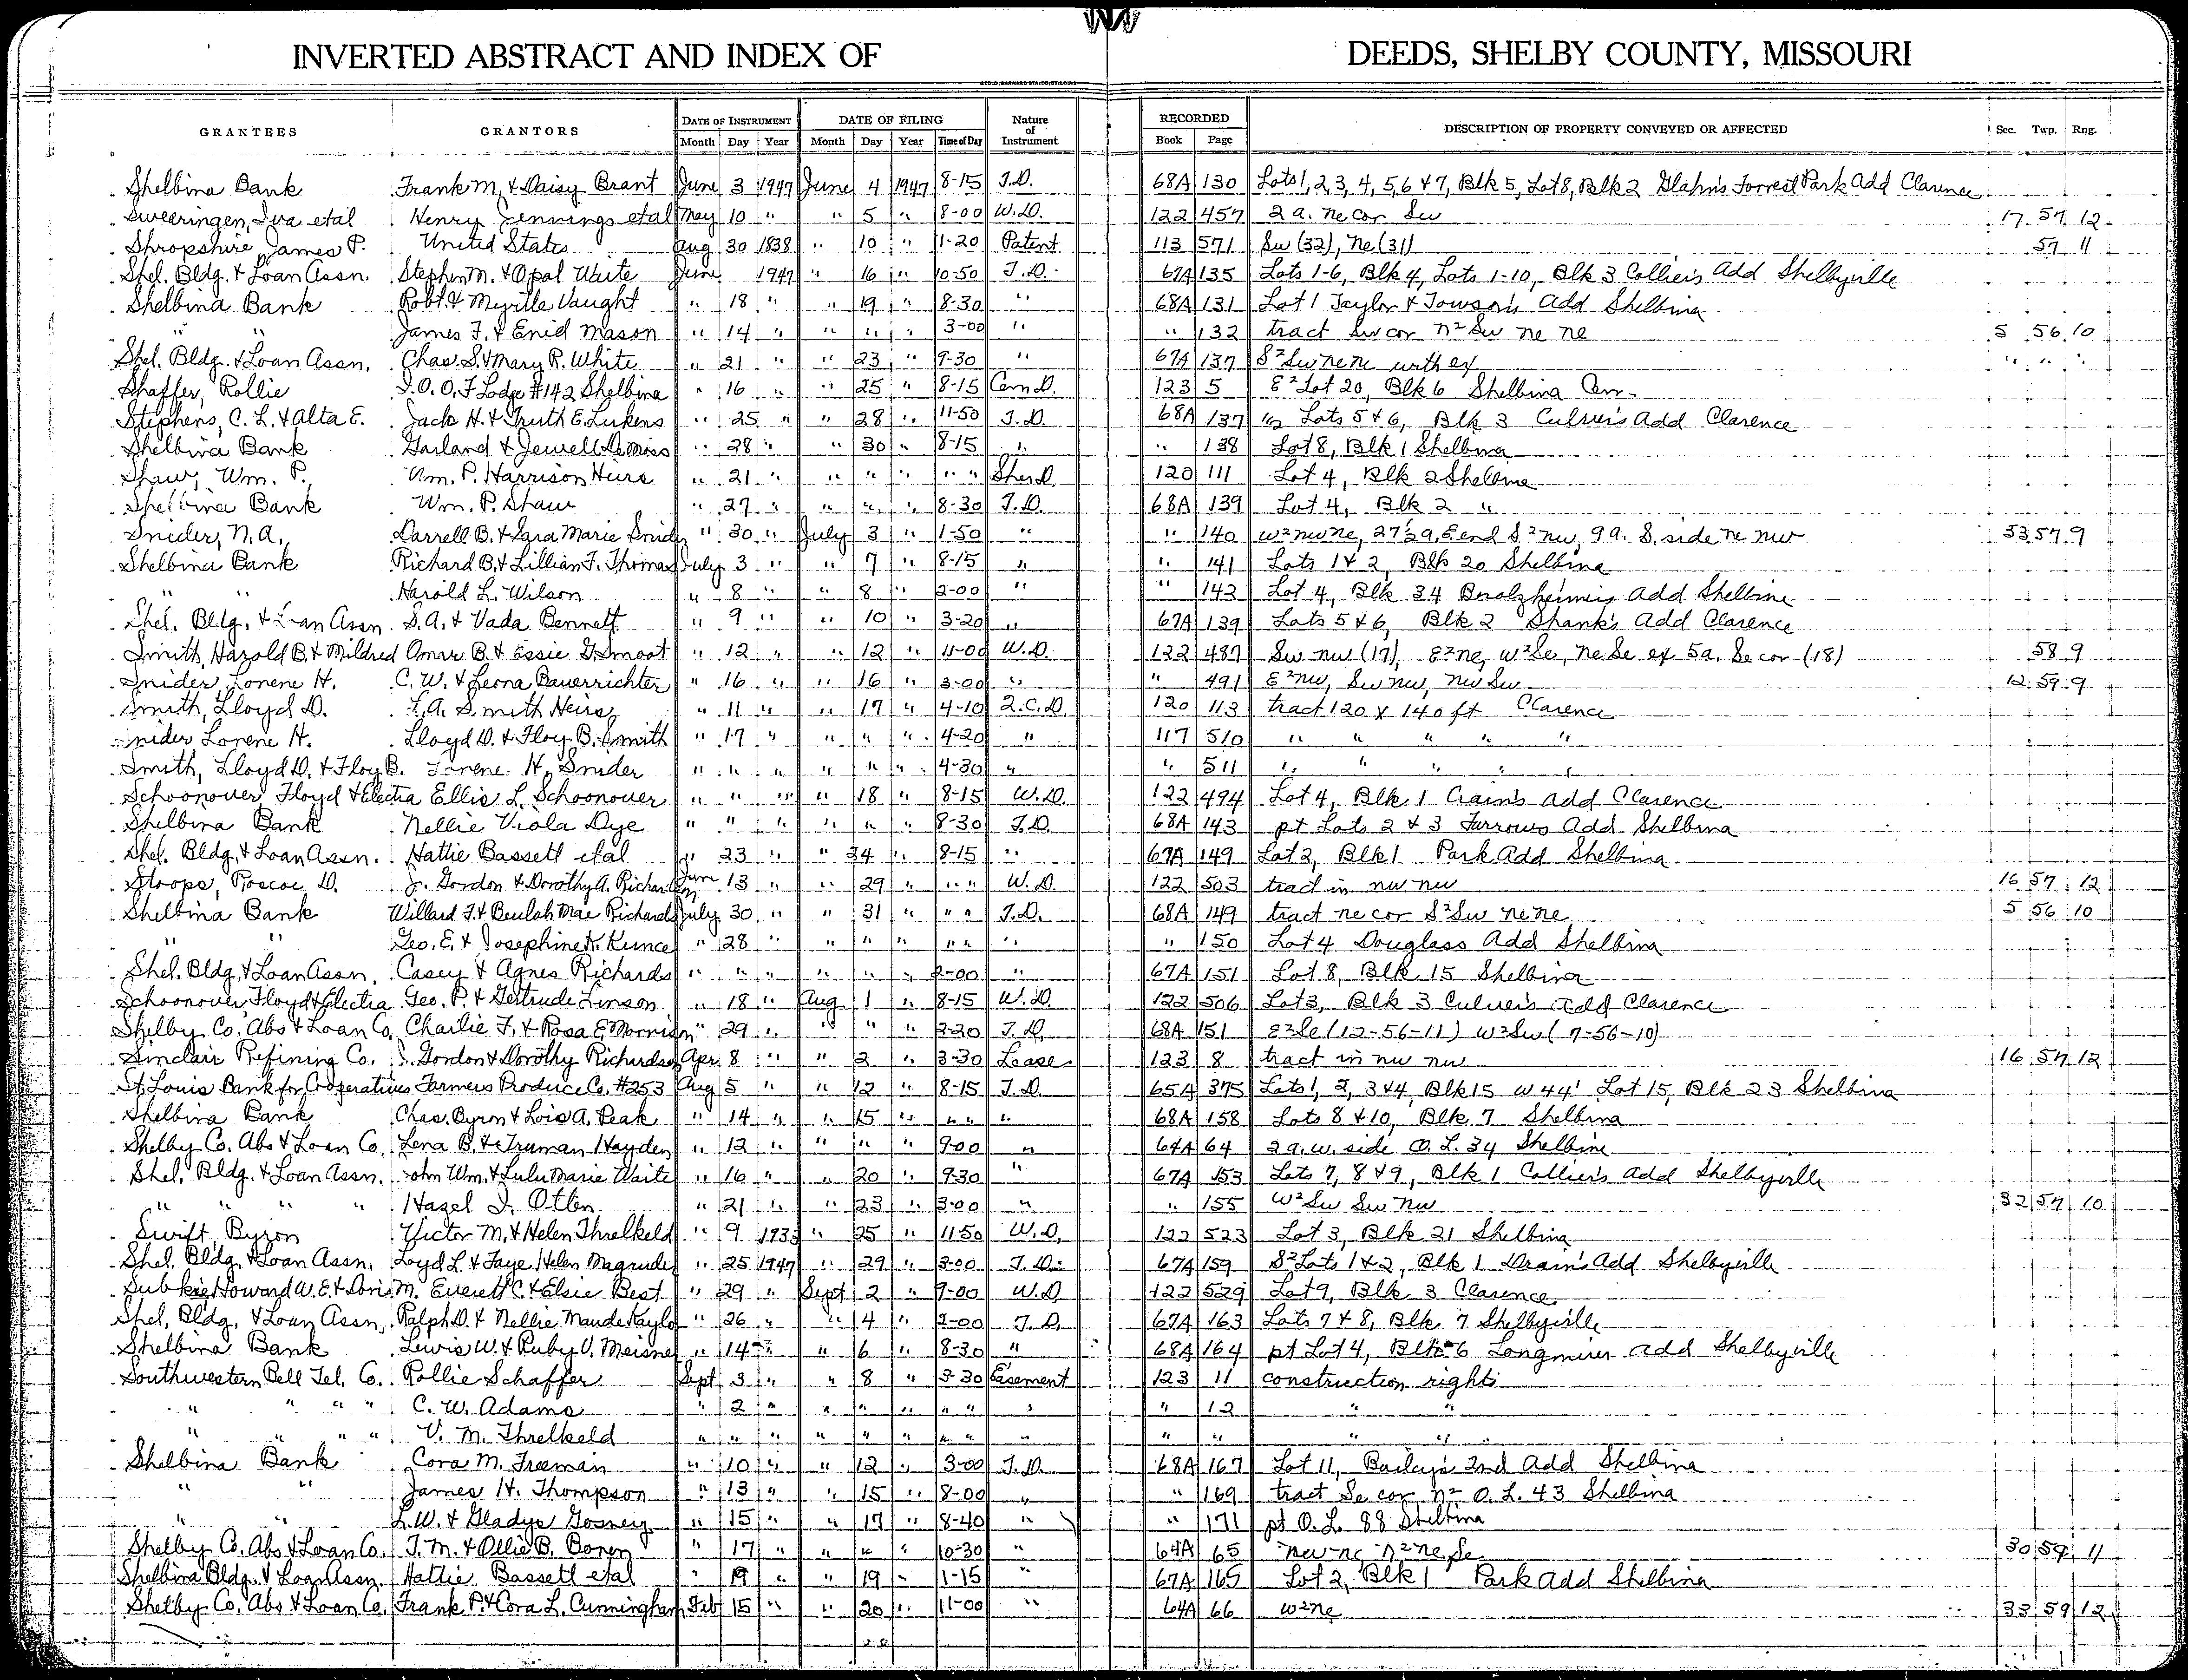 INVERTED ABSTRACT AND INDEX OF DEEDS, SHELBY COUNTY, MISSOURI
GEO. D. BARNARD STA. CO. ST. LOUIS
GRANTEES GRANTORS DATE OF INSTRUMENT DATE OF FILING Nature of Instrument RECORDED DESCRIPTION OF PROPERTY CONVEYED OR AFFECTED Sec. Twp. Rng.
Month Day Year Month Day Year Time of Day Book Page
Shelbina Bank Frank M. & Daisy Brant June 3 1947 June 4 1947 8-15 T.D. 68A 130 Lots 1, 2, 3, 4, 5, 6 & 7, Blk 5, Lot 8, Blk 2 Glahn's Forrest Park Add Clarence
Swearingen, Iva etal Henry Jennings etal May 10 " " 5 " 8-00 W.D. 122 457 2 a. ne cor Sw 17 57 12
Shropshire, James P. United States Aug 30 1838 " 10 " 1-20 Patent 113 571 Sw (32), Ne (31) 57 11
Shel. Bldg. & Loan Assn. Stephen M. & Opal Waite June 1947 " 16 " 10-50 T.D. 67A 135 Lots 1-6, Blk 4, Lots 1-10, Blk 3 Collier's Add Shelbyville
Shelbina Bank Robt. & Myrtle Vaught " 18 " " 19 " 8-30 " 68A 131 Lot 1 Taylor & Towson's Add Shelbina
" " James F. & Enid Mason " 14 " " " " 3-00 " " 132 tract Sw cor N² Sw ne ne 5 56 10
Shel. Bldg. & Loan Assn. Chas. S. & Mary R. White " 21 " " 23 " 9-30 " 67A 137 S² Sw ne ne with ex " " "
Shaffer, Rollie I.O.O.F Lodge #142 Shelbina " 16 " " 25 " 8-15 Cem D. 123 5 E² Lot 20, Blk 6 Shelbina Cem.
Stephens, C. L. & Alta E. Jack H. & Truth E. Lukens " 25 " " 28 " 11-50 T.D. 68A 137 1/2 Lots 5 & 6, Blk 3 Culver's Add Clarence
Shelbina Bank Garland & Jewell DeMoss " 28 " " 30 " 8-15 " " 138 Lot 8, Blk 1 Shelbina
Shaw, Wm. P. Wm. P. Harrison Heirs " 21 " " " " " " Sher D. 120 111 Lot 4, Blk 2 Shelbina
Shelbina Bank Wm. P. Shaw " 27 " " " " 8-30 T.D. 68A 139 Lot 4, Blk 2 "
Snider, N. A. Darrell B. & Sara Marie Snider " 30 " July 3 " 1-50 " " 140 W² nw ne, 27½ a. E end S² nw, 9 a. S. side ne nw 33 57 9
Shelbina Bank Richard B. & Lillian F. Thomas July 3 " " 7 " 8-15 " " 141 Lots 1 & 2, Blk 20 Shelbina
" " Harold L. Wilson " 8 " " 8 " 2-00 " " 142 Lot 4, Blk 34 Add Shelbina
Shel. Bldg. & Loan Assn S. A. & Vada Bennett " 9 " " 10 " 3-20 " 67A 139 Lots 5 & 6, Blk 2 Shank's Add Clarence
Smith, Harold B. & Mildred Omar B. & Essie G. Smoot " 12 " " 12 " 11-00 W.D. 122 487 Sw nw (17), E² ne, W² Se, Ne Se ex 5a. Se cor (18) 58 9
Snider, Lorene H. C. W. & Leona Bauerrichter " 16 " " 16 " 3-00 " " 491 E² nw, Sw nw, nw Sw 12 59 9
Smith, Lloyd D. L. A. Smith Heirs " 11 " " 17 " 4-10 Q.C.D. 120 113 tract 120 x 140 ft Clarence
Snider Lorene H. Lloyd D. & Floy B. Smith " 17 " " " " 4-20 " 117 510 " " " " "
Smith, Lloyd D. & Floy B. Lorene H. Snider " " " " " " 4-30 " " 511 " " " " "
Schoonover, Floyd & Electia Ellis L. Schoonover " " " " 18 " 8-15 W.D. 122 494 Lot 4, Blk 1 Crain's Add Clarence
Shelbina Bank Nellie Viola Dye " " " " " " 8-30 T.D. 68A 143 pt Lots 2 & 3 Farrows Add Shelbina
Shel. Bldg. & Loan Assn. Hattie Bassett etal " 23 " " 24 " 8-15 " 67A 149 Lot 2, Blk 1 Park Add Shelbina
Stoops, Roscoe D. J. Gordon & Dorothy A. Richardson June 13 " " 29 " " " W.D. 122 503 tract in nw nw 16 57 12
Shelbina Bank Willard F. & Beulah Mae Richards July 30 " " 31 " " " T.D. 68A 149 tract ne cor S² Sw ne ne 5 56 10
" " Geo. E. & Josephine A. Kunce " 28 " " " " " " " " 150 Lot 4 Douglass Add Shelbina
Shel. Bldg. & Loan Assn. Casey & Agnes Richards " " " " " " 2-00 " 67A 151 Lot 8, Blk 15 Shelbina
Schoonover, Floyd & Electia Geo. P. & Gertrude Linson " 18 " Aug 1 " 8-15 W.D. 122 506 Lot 3, Blk 3 Culver's Add Clarence
Shelby Co. Abs & Loan Co. Charlie F. & Rosa E Morrison " 29 " " " " 2-20 T.D. 68A 151 E² Se (12-56-11) W² Sw (7-56-10)
Sinclair Refining Co. J. Gordon & Dorothy Richardson Apr 8 " " 2 " 3-30 Lease 123 8 tract in nw nw 16 57 12
St. Louis Bank for Cooperatives Farmers Produce Co. #253 Aug 5 " " 12 " 8-15 T.D. 65A 375 Lots 1, 2, 3 & 4, Blk 15 W 44' Lot 15, Blk 23 Shelbina
Shelbina Bank Chas. Byron & Lois A. Peak " 14 " " 15 " " " " 68A 158 Lots 8 & 10, Blk 7 Shelbina
Shelby Co. Abs & Loan Co. Lena B. & Truman Hayden " 12 " " " " 9-00 " 64A 64 2 a. w. side O. L. 34 Shelbina
Shel. Bldg. & Loan Assn. John Wm. & Lulu Marie Waite " 16 " " 20 " 9-30 " 67A 153 Lots 7, 8 & 9, Blk 1 Collier's Add Shelbyville
" " " " Hazel I. Otten " 21 " " 23 " 3-00 " " 155 W² Sw Sw nw 32 57 10
Swift, Byron Victor M. & Helen Threlkeld " 9 1933 " 25 " 11-50 W.D. 122 523 Lot 3, Blk 21 Shelbina
Shel. Bldg. & Loan Assn. Loyd L. & Faye Helen Magruder " 25 1947 " 29 " 3-00 T.D. 67A 159 S² Lots 1 & 2, Blk 1 Drain's Add Shelbyville
Howard W. E. & Doris M. Everett C. & Elsie Best " 29 " Sept 2 " 9-00 W.D. 122 529 Lot 9, Blk 3 Clarence
Shel. Bldg. & Loan Assn. Ralph D. & Nellie Maude Kaylor " 26 " " 4 " 2-00 T.D. 67A 163 Lots 7 & 8, Blk 7 Shelbyville
Shelbina Bank Lewis W. & Ruby V. Meisner " 14 " " 6 " 8-30 " 68A 164 pt Lot 4, Blk 6 Longmires Add Shelbyville
Southwestern Bell Tel. Co. Rollie Schaffer Sept 3 " " 8 " 3-30 Easement 123 11 construction rights
" " " " C. W. Adams " 2 " " " " " " " " 12 " "
" " " " V. M. Threlkeld " " " " " " " " " " " " "
Shelbina Bank Cora M. Freeman " 10 " " 12 " 3-00 T.D. 68A 167 Lot 11, Bailey's 2nd Add Shelbina
" " James H. Thompson " 13 " " 15 " 8-00 " " 169 tract Se cor N² O. L. 43 Shelbina
" " L. W. & Gladys Gosney " 15 " " 17 " 8-40 " " 171 pt O. L. 88 Shelbina
Shelby Co. Abs & Loan Co. T. M. & Ollie B. Boren " 17 " " " " 10-30 " 64A 65 nw ne N² ne Se 30 59 11
Shelbina Bldg. & Loan Assn. Hattie Bassett etal " 19 " " 19 " 1-15 " 67A 165 Lot 2, Blk 1 Park Add Shelbina
Shelby Co. Abs & Loan Co. Frank P. & Cora L. Cunningham Feb 15 " " 20 " 11-00 " 64A 66 W² ne 33 59 12